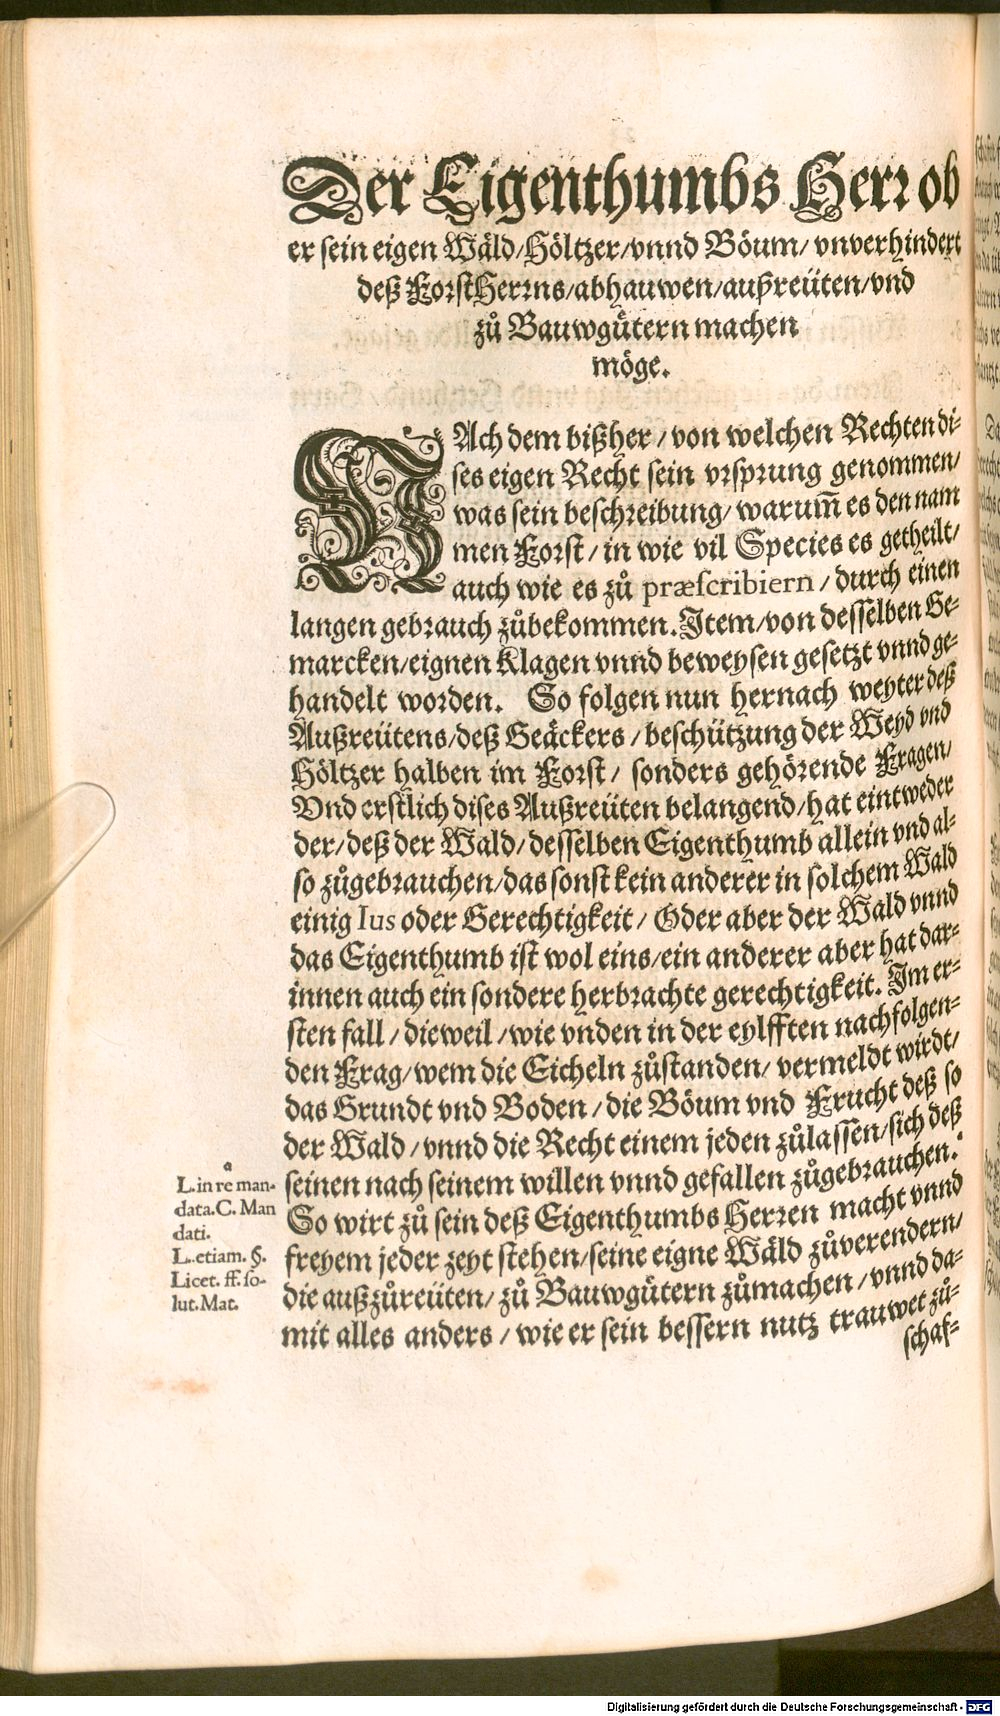 Der Eigenthumbs Herr ob
er sein eigen Wäld/Höltzer/vnnd Böum/ vnverhindert
deß ForstHerrns/abhauwen/außreüten/vnd
zů Bauwgůtern machen
möge.
NAch dem bißher/von welchen Rechten di-
ses eigen Recht sein vrsprung genommen/
was sein beschreibung/warum̃ es den nam
men Forst/in wie vil Species es getheilt/
auch wie es zů præscribiern/durch einen
langen gebrauch zůbekommen. Item/von desselben Ge-
marcken/eignen Klagen vnnd beweysen gesetzt vnnd ge-
handelt worden. So folgen nun hernach weyter deß
Außreütens/deß Geäckers/beschützung der Weyd vnd
Höltzer halben im Forst/ sonders gehörende Fragen/
Vnd erstlich dises Außreüten belangend/hat eintweder
der/deß der Wald/desselben Eigenthumb allein vnd al-
so zůgebrauchen/das sonst kein anderer in solchem Wald
einig Ius oder Gerechtigkeit/ Oder aber der Wald vnnd
das Eigenthumb ist wol eins/ein anderer aber hat dar-
innen auch ein sondere herbrachte gerechtigkeit. Im er-
sten fall/dieweil/wie vnden in der eylfften nachfolgen-
den Frag/wem die Eicheln zůstanden/vermeldt wirdt/
das Grundt vnd Boden/die Böum vnd Frucht deß so
der Wald/vnnd die Recht einem jeden zůlassen/sich deß
seinen nach seinem willen vnnd gefallen zůgebrauchen. a
So wirt zů sein deß Eigenthumbs Herren macht vnnd
freyem jeder zeyt stehen/seine eigne Wäld zůverendern/
die außzůreüten/zů Bauwgůtern zůmachen/vnnd da-
mit alles anders/wie er sein bessern nutz trauwet zů-
schaf-
a
L. in re man-
data. C. Man
dati.
L. etiam. §.
Licet. ff. so-
lut. Mat.
Digitalisierung gefördert durch die Deutsche Forschungsgemeinschaft - DFG